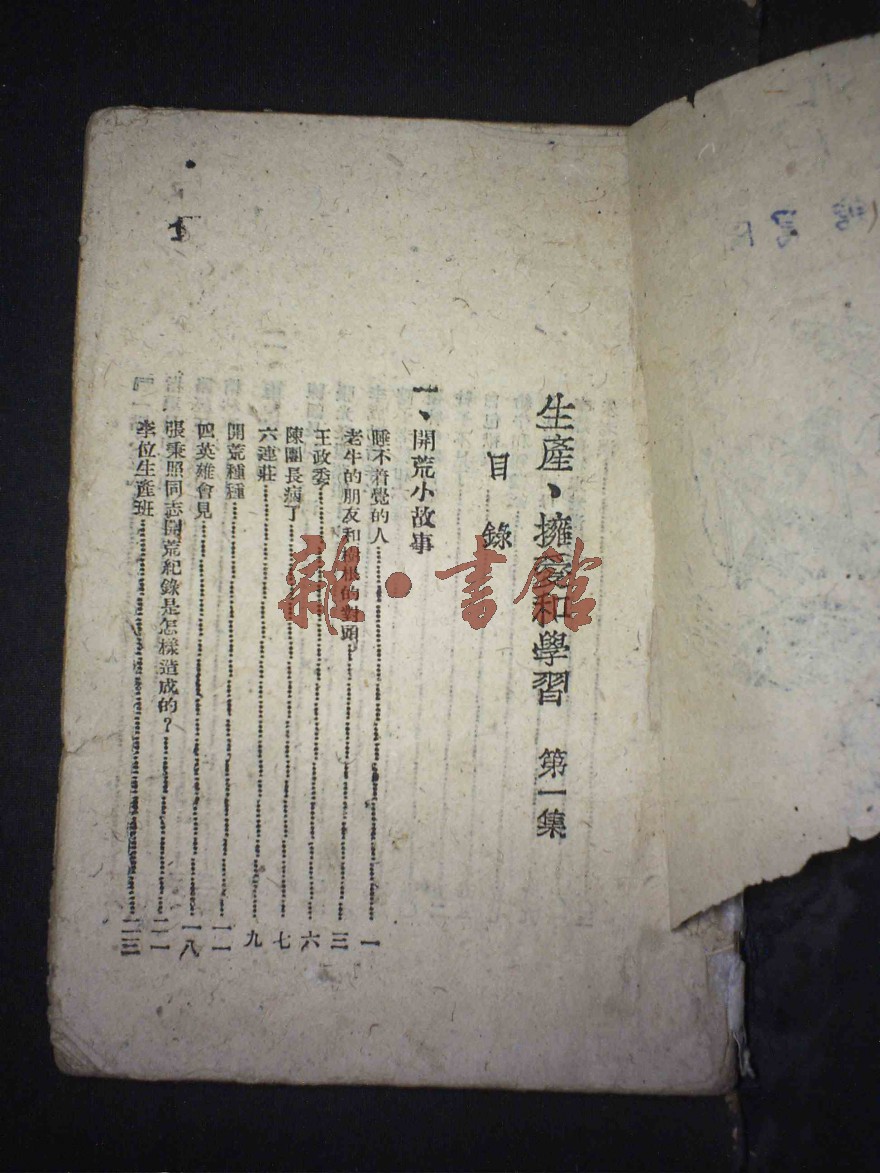 生產、擁愛和學習 第一集
目錄
一、開荒小故事
睡不着覺的人 一
老牛的朋友和樹根的對頭 三
王政委 六
陳團長病了 七
六連莊 九
開荒種種 一一
四英雄會見 一八
張秉照同志開荒紀錄是怎樣造成的? 二一
李位生產班 二三
雜·書館